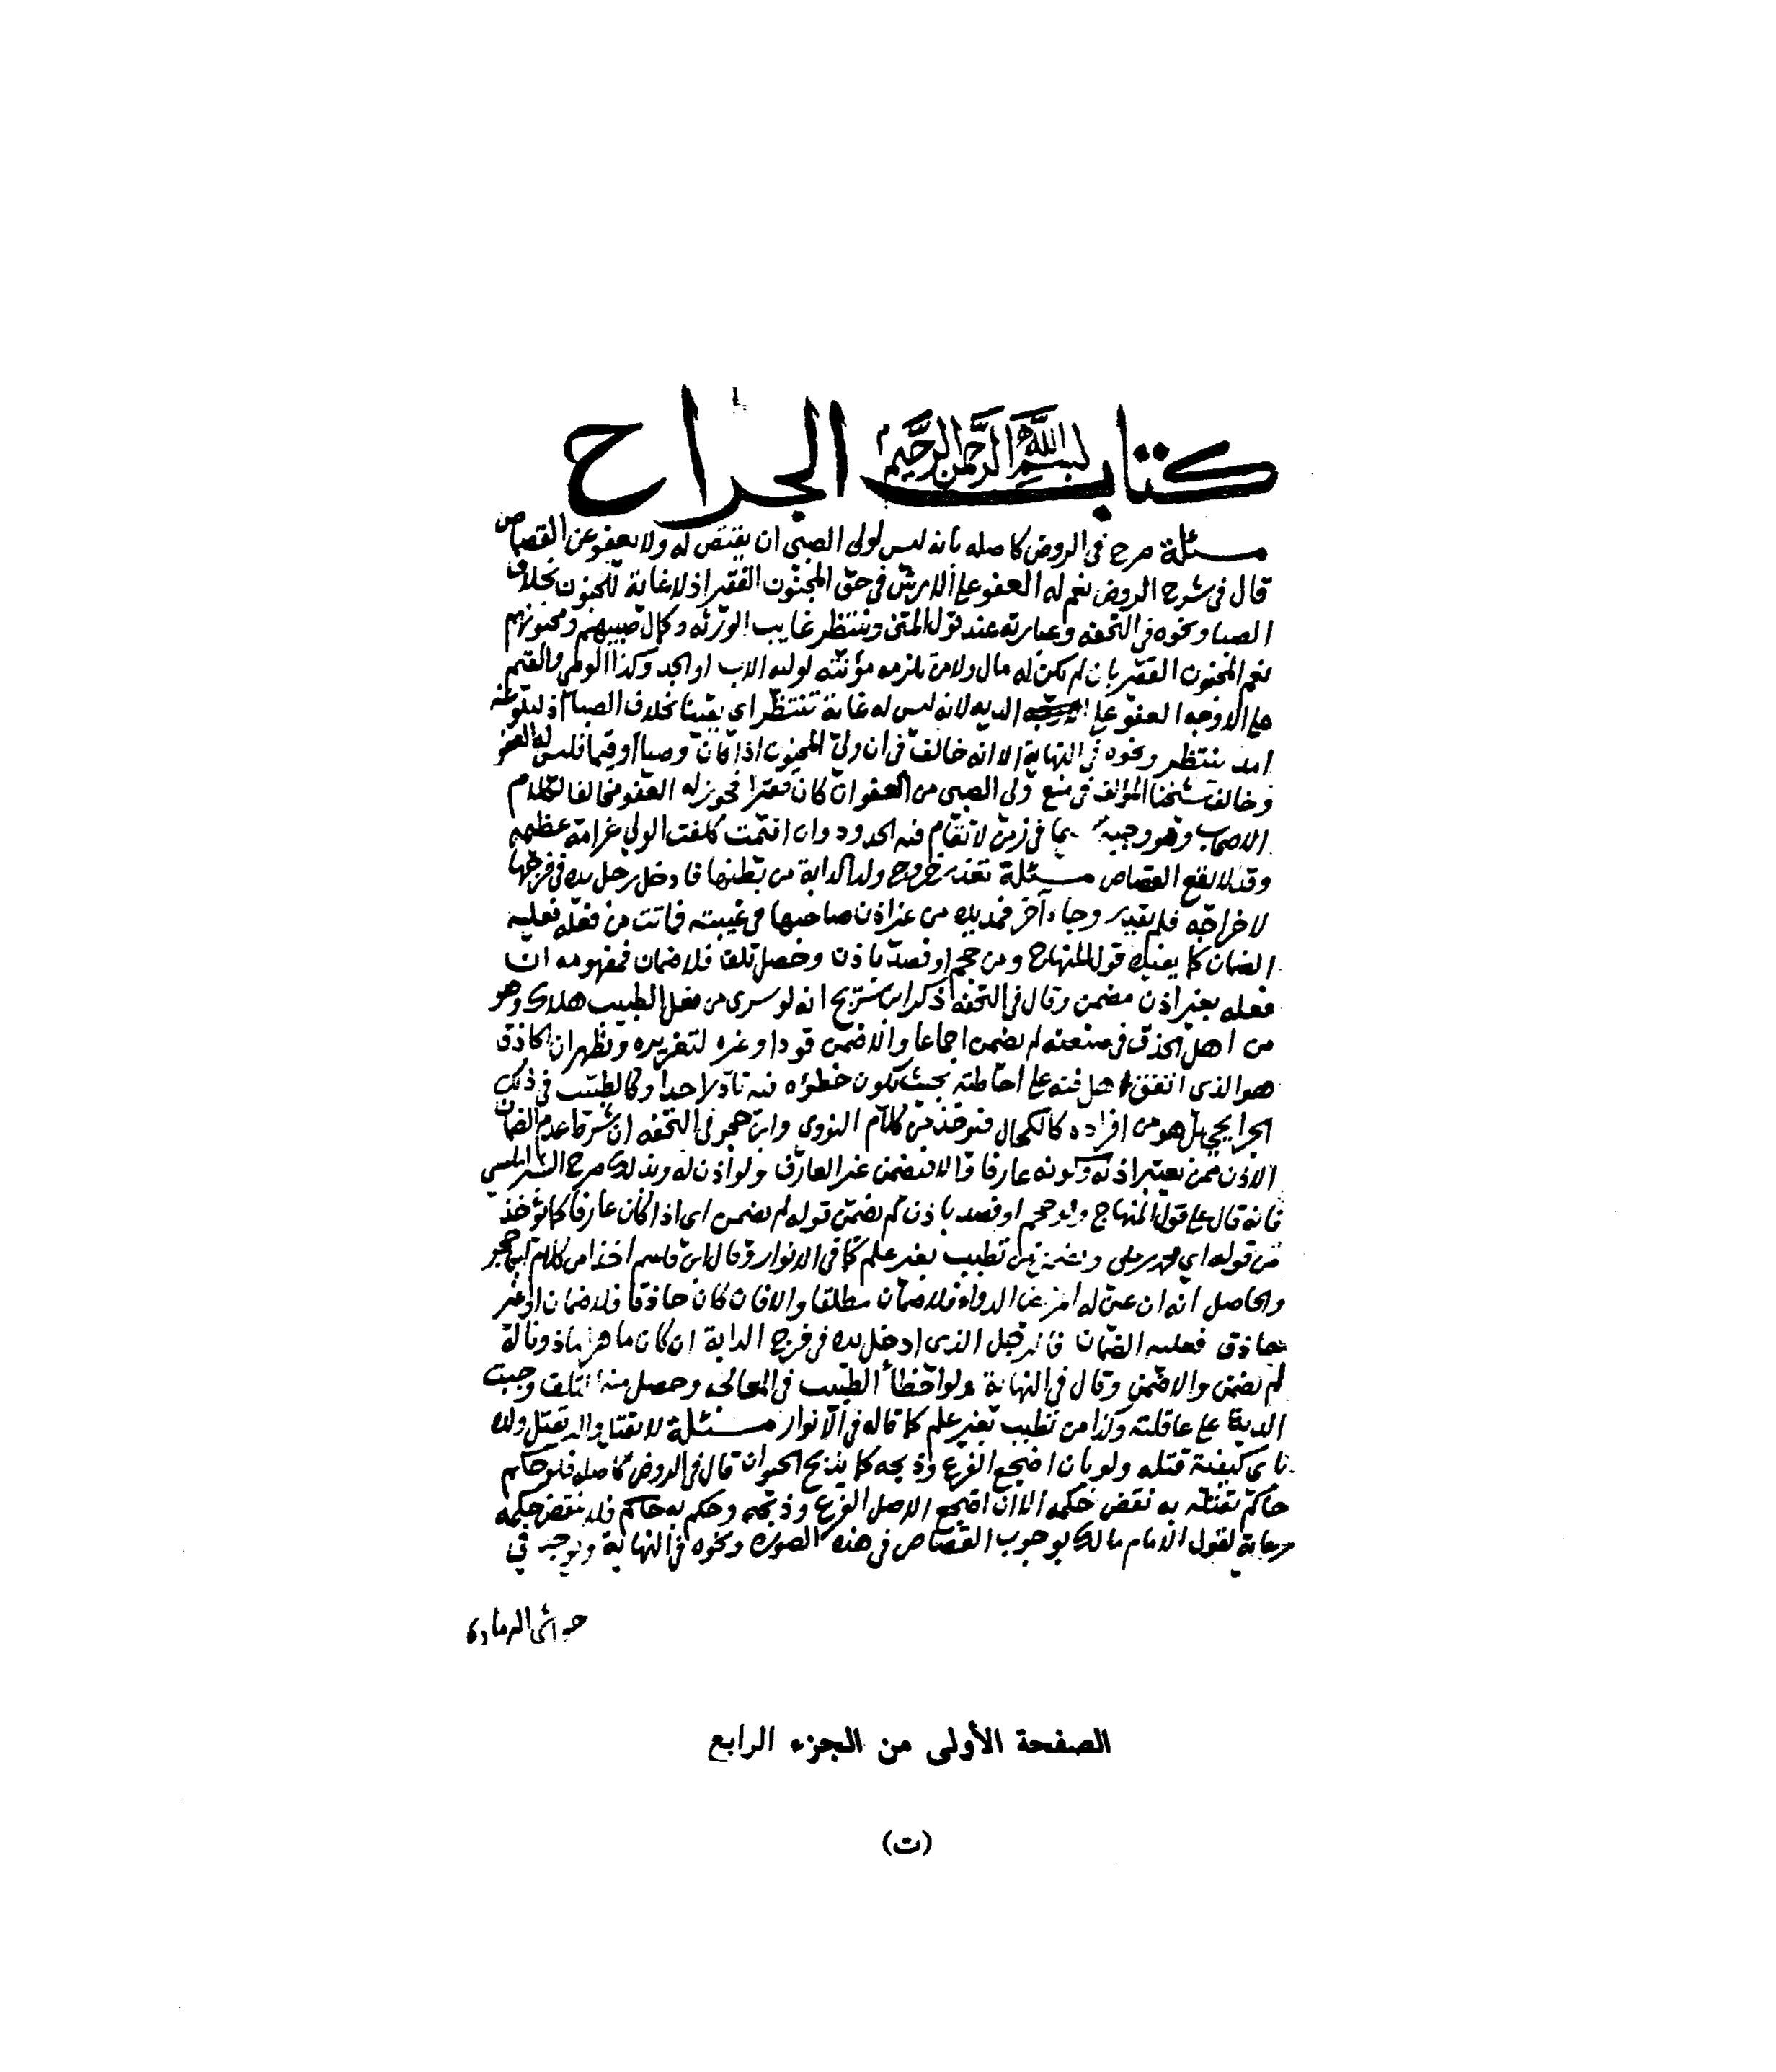 كتاب الجراح
بسم الله الرحمن الرحيم
مسئلة صرح في الروض كاصله بانه ليس لولي الصبي ان يقتص له ولا يعفو عن القصاص
قال في شرح الروض نعم له العفو على الارش في حق المجنون الفقير اذ لا غاية للجنون بخلاف
الصبا ونحوه في التحفه وعبارته عند قول المتن وينتظر غايب الورثه وكمال صبيهم ومجنونهم
نعم المجنون الفقير بان لم يكن له مال ولا من يلزمه مؤنته لوليه الاب او الجد وكذا الوصي والقيم
على الاوجه العفو على الديه لانه ليس له غاية تنتظر اي يقينا بخلاف الصبا اذ لبلوغه
امد ينتظر ونحوه في النهاية الا انه خالف في ان ولي المجنون اذا كان وصيا او قيما فليس له العفو
وخالف شيخنا المؤلف في منع ولي الصبي من العفو ان كان فقيرا فجوز له العفو مخالفا لكلام
الاصحاب وهو وجيه في زمن لا تقام فيه الحدود وان اقيمت كلفت الولي غرامة عظيمه
وقد لا يقع القصاص مسئلة تعذر خروج ولد الدابة من بطنها فادخل رجل يده في فرجها
لاخراجه فلم يقدر وجاء آخر فمد يده من غير اذن صاحبها في غيبته فماتت من فعله فعليه
الضمان كما يفيده قول المنهاج ومن حجم او فصد باذن وحصل تلف فلا ضمان فمفهومه ان
فعله بغير اذن مضمن وقال في التحفه ذكر ابن سريج انه لو سرى من فعل الطبيب هلاك وهو
من اهل الحذق في صنعته لم يضمن اجماعا والا ضمن قودا وغيره لتغريره ويظهر ان الحاذق
هو الذي اتفق اهل فنه على احاطته بحيث يكون خطؤه فيه نادرا جدا وكالطبيب في ذلك
الجرايحي بل هو من افراده كالكحال فيؤخذ من كلام النووي وابن حجر في التحفه ان شرط عدم الضمان
الاذن ممن يعتبر اذنه وكونه عارفا والا فيضمن غير العارف ولو اذن له وبذلك صرح الشبراملسي
فانه قال على قول المنهاج ولو حجم او فصد باذن لم يضمن قوله لم يضمن اي اذا كان عارفا كما يؤخذ
من قوله اي محمد رملي من تطبب بغير علم كما في الانوار وقال ابن قاسم اخذا من كلام ابن حجر
والحاصل انه ان عين له الدواء فلا ضمان مطلقا والا فان كان حاذقا فلا ضمان او غير
حاذق فعليه الضمان فالرجل الذي ادخل يده في فرج الدابة ان كان ماهرا ماذونا له
لم يضمن والا ضمن وقال في النهاية ولو اخطأ الطبيب في المعالجه وحصل منه التلف وجبت
الدية على عاقلته وكذا من تطبب بغير علم كما قاله في الانوار مسئلة لا يقتل والد بقتل ولده
باي كيفية قتله ولو بان اضجع الفرع وذبحه كما يذبح الحيوان قال في الروض كاصله فلو حكم
حاكم بقتله به نقض حكمه الا ان اضجع الاصل الفرع وذبحه وحكم به حاكم فلا ينقض حكمه
رعاية لقول الامام مالك بوجوب القصاص في هذه الصورة ونحوه في النهاية ويوجد في
حواشي
الصفحة الأولى من الجزء الرابع
(ت)